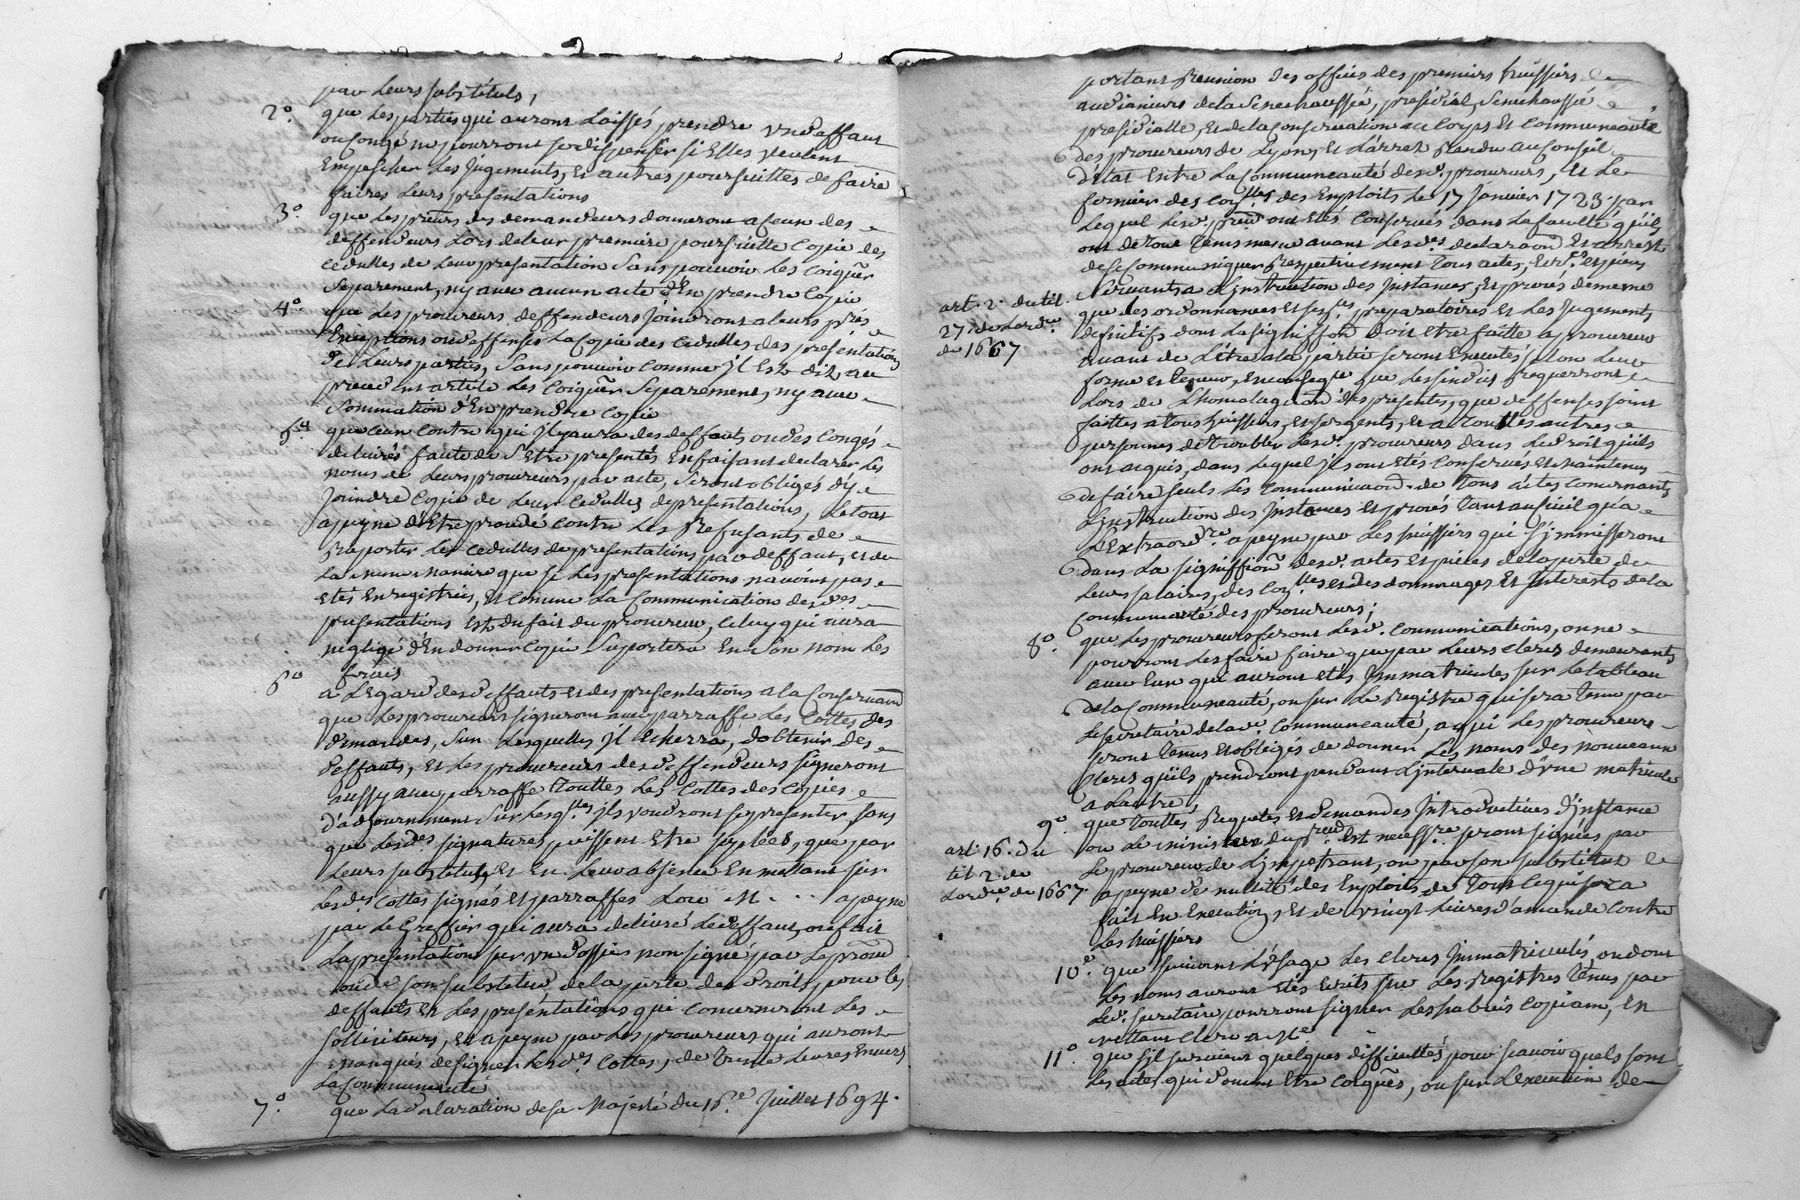 par Leurs substituts,
2.° que Les parties qui auront Laissés prendre un deffaut
ou Congé ne pourront se dispenser si Elles veulent
Empescher Les Jugements, Et autres poursuittes de faire
faires Leurs presentations
3.° que Les preurs des demandeurs donneront a ceux des
deffendeurs Lors de leur premiere poursuitte Copie des
cedulles de Leur presentation Sans pouvoir Les
Separement, ny avec aucun acte d'En prendre Copie
4.° que Les procureurs deffendeurs Joindront a leurs
Exceptions ou deffenses La Copie des Cedulles des presentations
de Leurs parties, Sans pouvoir comme Jl Est dit au
article Les Separement, ny avec
Sommation d'En prendre Copie
5° que ceux contre qui Jl y aura des deffauts ou des Congés
delivrés faute de S'etre presentés En faisant declarer Les
noms de Leurs procureurs par acte, Seront obligés d'y
Joindre Copie de Leur Cedulles de presentations, Le tout
a peyne d'Etre procedé Contre Les Refusants de
Raporter Les Cedulles de presentations par deffaut, et de
La meme maniere que si Les presentations n'avoint pas
etés Enregistrées, Et comme La Communication desdes
presentations Est du fait du procureur, Celuy qui aura
negligé d'En donner Copie Suportera En Son nom Les
frais
6° a L'Egard des deffauts et des presentations a la Conservaon
que Les procureurs signeront avec parraffe Les Cottes des
demandes, Sur Lesquelles Jl Echerra, d'obtenir des
deffauts, Et Les procureurs des deffendeurs signeront
aussy avec parraffe touttes Les Cottes des Copies
d'adjournement Sur Lesqlles Jls voudront se presenter sans
que Lesdes signatures puissent Etre suplées, que par
Leurs substituts, Et En Leur absence En mettant sur
Lesdes Cottes signés Et parraffés Loüi M. . . . a peyne
par Le Greffier qui aura delivré Le deffaut, ou fait
La presentation sur un dossier non signé par Le
ou de son Substitut de la perte des droits pour les
deffauts Et Les presentations qui Concerneront Les
solliciteurs, Et a peyne par Les procureurs qui auront
manqués de signer Lesdes Cottes, de trente Livres Envers
La Communeauté
7.° que La declaration de sa Majesté du 16.e Juillet 1694.
portant Reunion des offices des premiers huissiers
audianciers de la Senechaussée, presidial, Senechaussée
presidialle, Et de la Conservation au Corps Et Communeauté
des procureurs de Lyon, Et L'arrest Rendu au Conseil
d'état Entre La Communeauté desd. procureurs, Et Le
fermier des des Exploits Le 17 Janvier 1723. par
Lequel Lesd. ont Etés Conservés dans La faculté qu'ils
ont de tout tems meme avant Lesdes declaraon Et arrest
de se Communiquer Respectivement tous actes, Ecr.es et pieces
Servants a L'instruction des Jnstances, Et procés de meme
art. 2. du tit. que des ordonnances et preparatoires Et Les Jugements
27. de Lordce definitifs dont La Signiffon doit etre faitte a procureur
de 1667 avant de L'etre a la partie seront Executés selon Leur
forme Et teneur, que Les sindics Requerront
Lors de L'homologaon des presentes, que deffenses soient
faittes a tous huissiers, Et sergents, Et a touttes autres
personnes de troubler Lesd. procureurs dans Le droit qu'ils
ont acquis, dans Lequel Jls ont Etés Conservés Et maintenus
de faire seuls Les Communicaons de tous actes concernants
L'instruction des Jnstances Et procés tant au Civil qu'a
L'Extraordre a peyne par Les huissiers qui s'immisseront
dans La Signiffion desd. actes Et pieces de la perte de
Leurs salaires, des Et des dommages Et Jnterests de la
Communauté des procureurs;
8.° que Les procureurs feront Lesd. Communications, ou ne
pourront Les faire faire que par Leurs clercs demeurants
avec Eux qui auront etés Jmmatricules sur Le tableau
de la Communeauté, ou sur Le Registre qui sera tenu par
Le secretaire de lade Communeauté, a qui Les procureurs
seront tenus Et obligés de donner Les noms des nouveaux
Clercs qu'ils prendront pendant L'intervale d'une matricule
a L'autre,
9.° que touttes Requetes Et Demandes Introductives d'instance
art. 16. du ou Le ministere du Est necessre seront signées par
tit. 2. de Le procureur de L'impetrant, ou par son substitut
Lordce de 1667. a peyne de nullité des Exploits, de tout ce qui sera
fait En Execution, Et de vingt Livres d'amande Contre
Les huissiers
10.° que suivant L'usage Les Clercs Jmmatriculés, ou dont
Les noms auront Etés Ecrits sur Les Registres tenus par
Led. secretaire pourront signer Les habüis copiam, En
mettant Clerc a Me
11.° que s'il survient quelques difficultés pour scavoir quels sont
Les actes qui doivent Etre, ou sur L'execution de